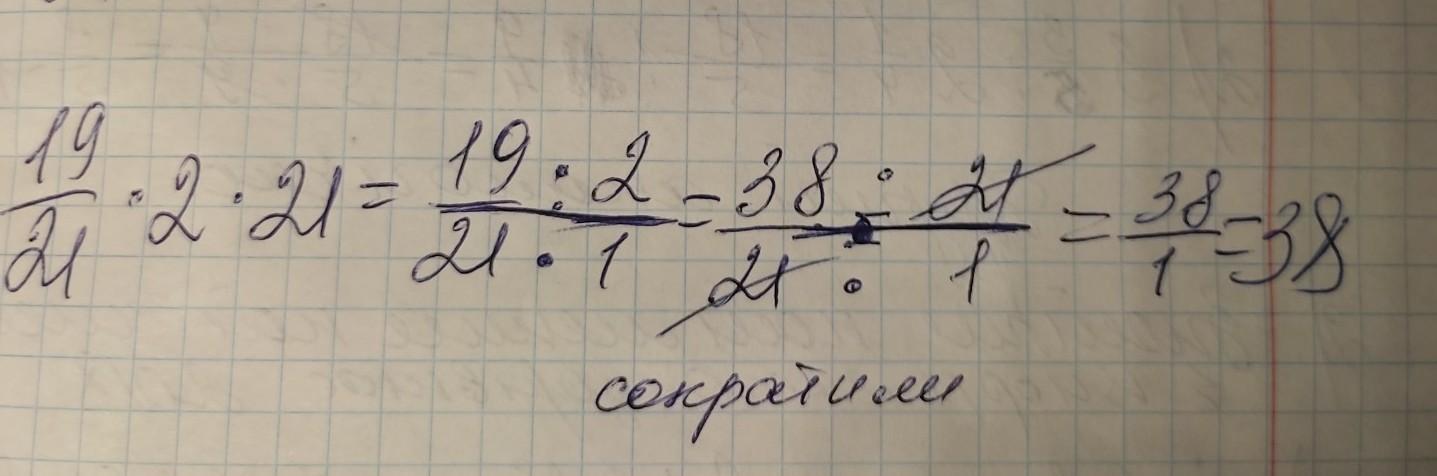 19/21 · 2 · 21 = 19 · 2/21 · 1 = 38 · 21/21 · 1 = 38/1 = 38
сократили